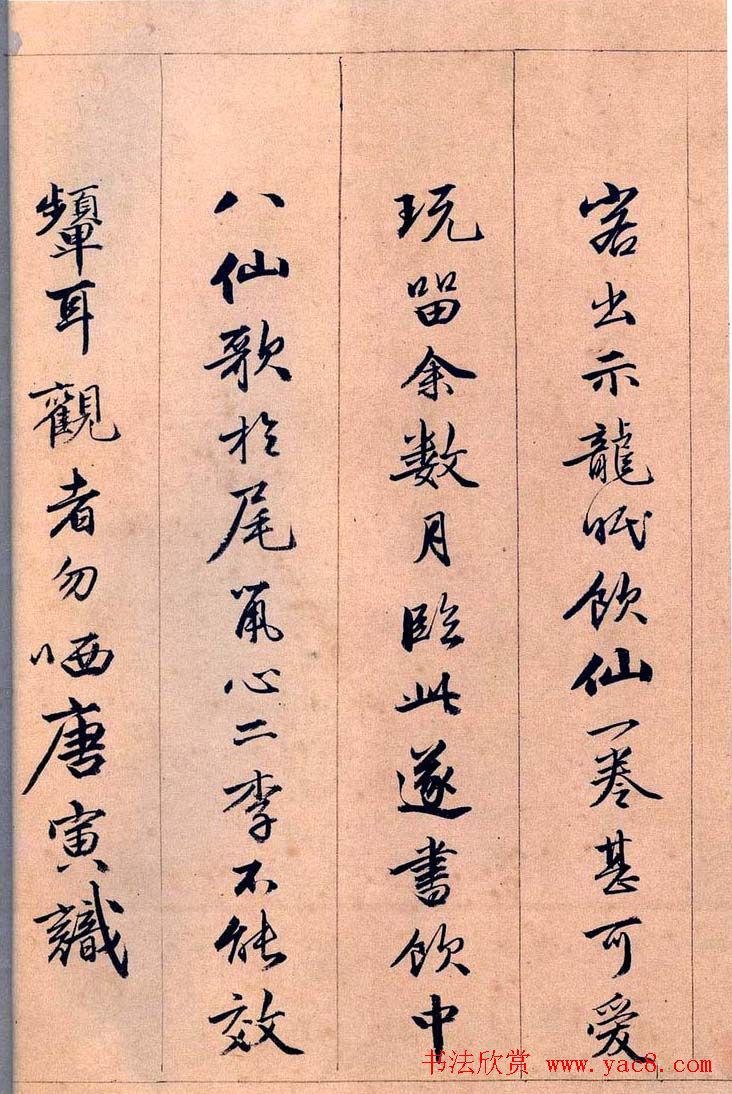 客出示龍眠飲仙一卷甚可愛
玩留余数月臨此遂書飲中
八仙歌於尾第心二李不能效
顰耳觀者勿哂唐寅識
书法欣赏 www.yac8.com